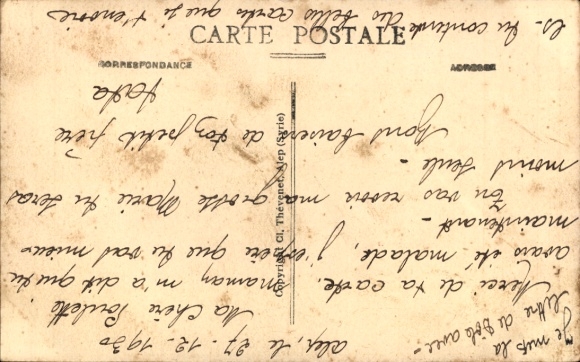 CARTE POSTALE
CORRESPONDANCE
ADRESSE
Copyright Cl. Thévenet, Alep (Syrie)
Alep, le 27-12-1930
Ma chère Paulette
Merci de ta carte. maman m'a dit que tu
avais été malade, j'espère que tu vas mieux
maintenant -
Tu vas revoir ma grosse Marie tu seras
moins seule -
bons baisers de ton petit frère
Je mets la
lettre de avec -
es-tu contente des belles cartes que je t'envoie